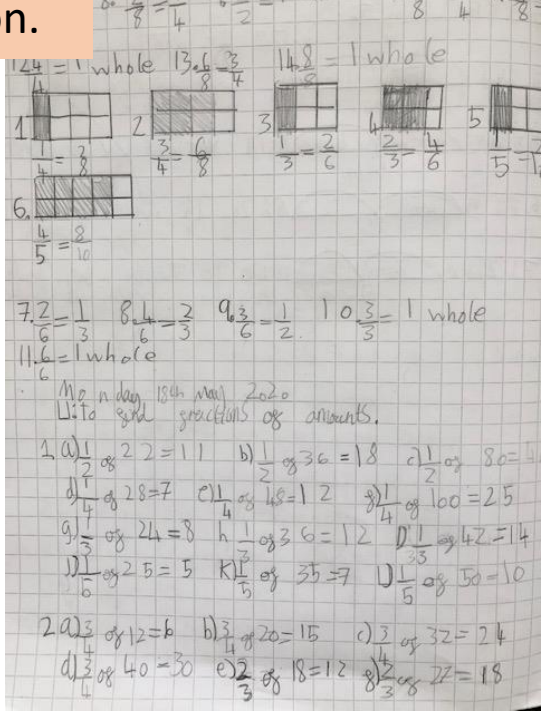 on.
8 4 2 8 4 8
12. 4/4 = 1 whole 13. 6/8 = 3/4 14. 8/8 = 1 whole
1 2 3 4 5
1/4 = 2/8 3/4 = 6/8 1/3 = 2/6 2/3 = 4/6 1/5 =
6.
4/5 = 8/10
7. 2/6 = 1/3 8. 4/6 = 2/3 9. 3/6 = 1/2 10. 3/3 = 1 whole
11. 6/6 = 1 whole
Monday 18th May 2020
LI: to find fractions of amounts.
1. a) 1/2 of 22 = 11 b) 1/2 of 36 = 18 c) 1/2 of 80 =
d) 1/4 of 28 = 7 e) 1/4 of 48 = 12 f) 1/4 of 100 = 25
g) 1/3 of 24 = 8 h 1/3 of 36 = 12 of 42 = 14
of 25 = 5 K) 1/5 of 35 = 7 l) 1/5 of 50 = 10
2. a) 3/4 of 12 = 6 b) 3/4 of 20 = 15 c) 3/4 of 32 = 24
d) 3/4 of 40 = 30 e) 2/3 of 18 = 12 2/3 of = 18